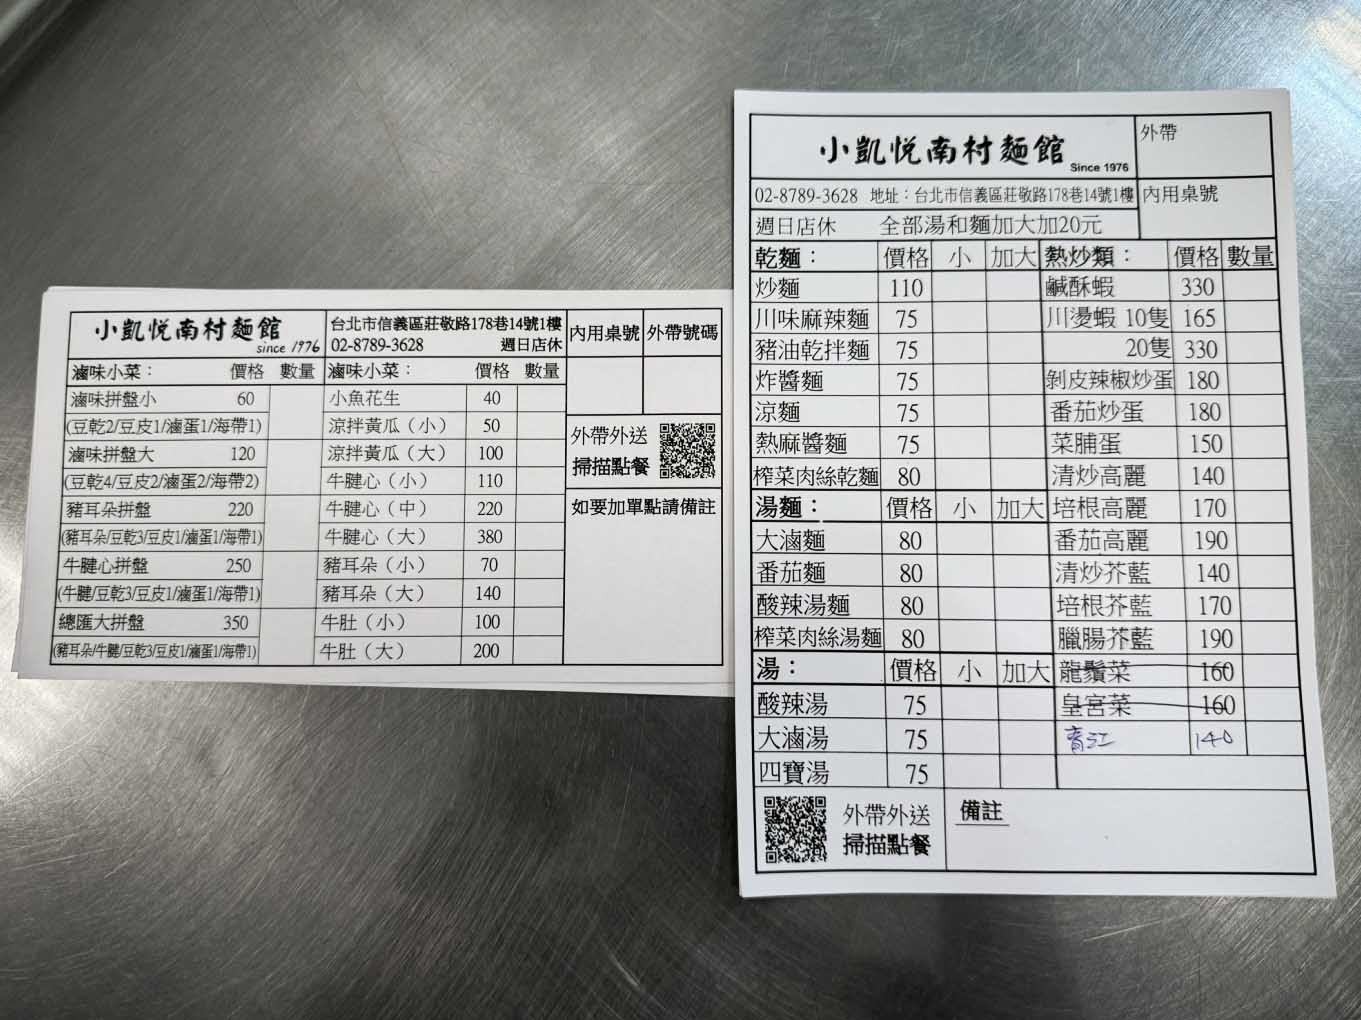 小凱悅南村麵館
since 1976
台北市信義區莊敬路178巷14號1樓
02-8789-3628 週日店休
內用桌號 外帶號碼
滷味小菜： 價格 數量 滷味小菜： 價格 數量
滷味拼盤小 60 小魚花生 40
(豆乾2/豆皮1/滷蛋1/海帶1) 涼拌黃瓜（小） 50
滷味拼盤大 120 涼拌黃瓜（大） 100
(豆乾4/豆皮2/滷蛋2/海帶2) 牛腱心（小） 110
豬耳朵拼盤 220 牛腱心（中） 220
(豬耳朵/豆乾3/豆皮1/滷蛋1/海帶1) 牛腱心（大） 380
牛腱心拼盤 250 豬耳朵（小） 70
(牛腱/豆乾3/豆皮1/滷蛋1/海帶1) 豬耳朵（大） 140
總匯大拼盤 350 牛肚（小） 100
(豬耳朵/牛腱/豆乾3/豆皮1/滷蛋1/海帶1) 牛肚（大） 200
外帶外送
掃描點餐
如要加單點請備註
小凱悅南村麵館
Since 1976
外帶
02-8789-3628 地址：台北市信義區莊敬路178巷14號1樓 內用桌號
週日店休 全部湯和麵加大加20元
乾麵： 價格 小 加大 熱炒類： 價格 數量
炒麵 110 鹹酥蝦 330
川味麻辣麵 75 川燙蝦 10隻 165
豬油乾拌麵 75 20隻 330
炸醬麵 75 剝皮辣椒炒蛋 180
涼麵 75 番茄炒蛋 180
熱麻醬麵 75 菜脯蛋 150
榨菜肉絲乾麵 80 清炒高麗 140
湯麵： 價格 小 加大 培根高麗 170
大滷麵 80 番茄高麗 190
番茄麵 80 清炒芥藍 140
酸辣湯麵 80 培根芥藍 170
榨菜肉絲湯麵 80 臘腸芥藍 190
湯： 價格 小 加大 龍鬚菜 160
酸辣湯 75 皇宮菜 160
大滷湯 75 青江 140
四寶湯 75
外帶外送
掃描點餐
備註